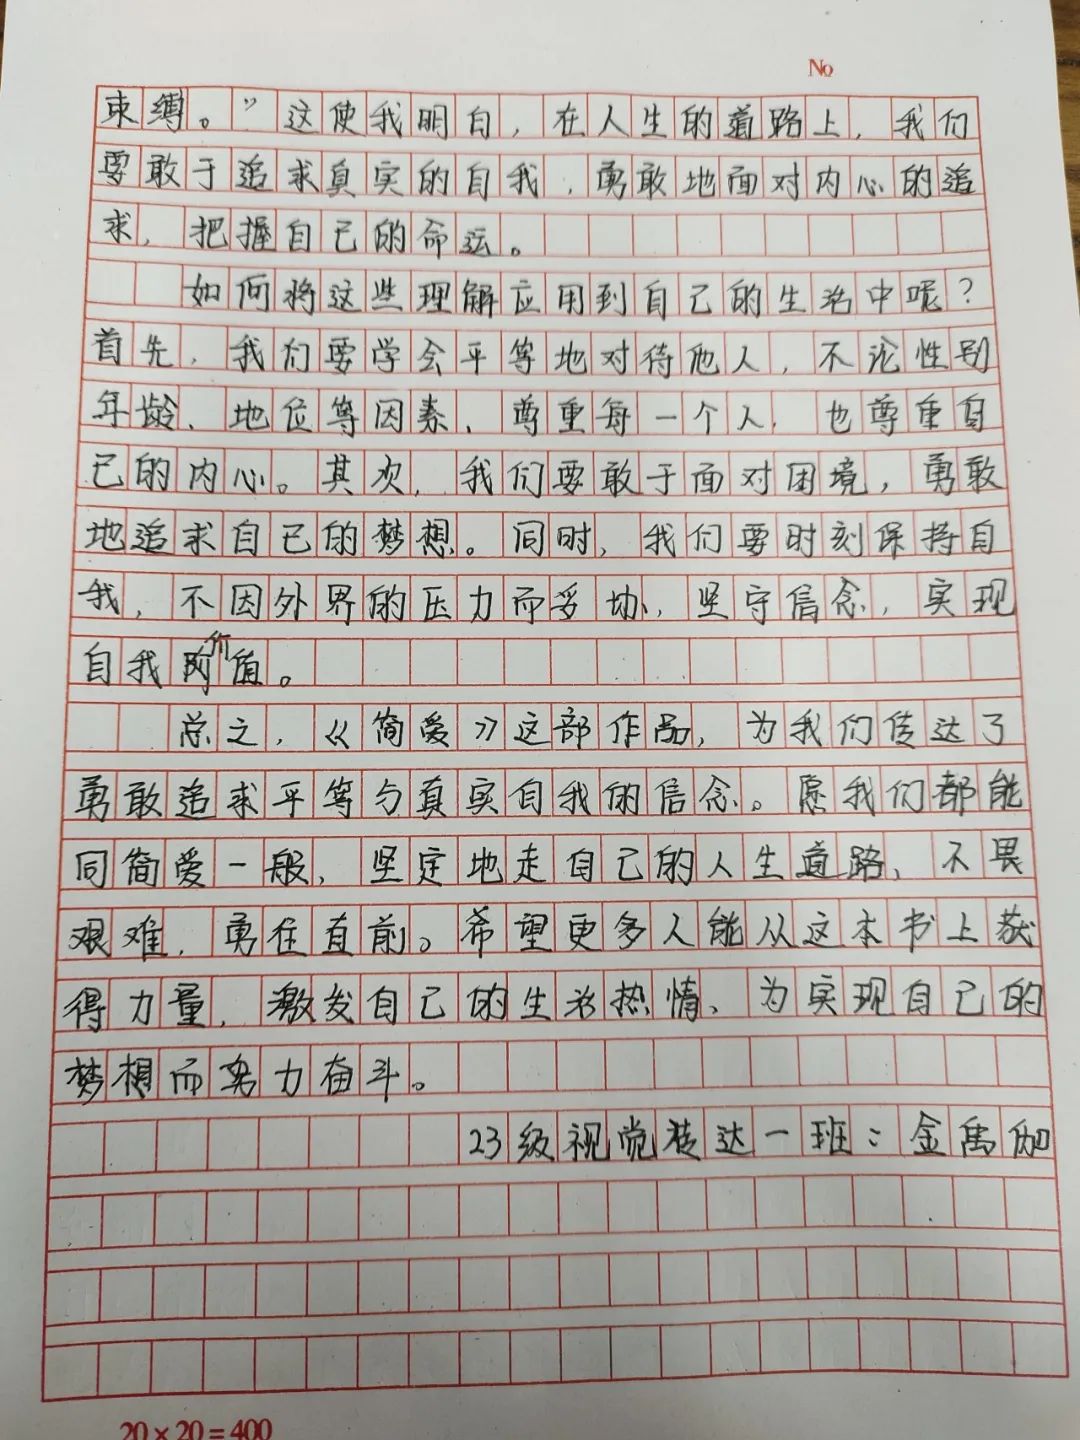 No
束缚。”这使我明白，在人生的道路上，我们
要敢于追求真实的自我，勇敢地面对内心的追
求，把握自己的命运。
如何将这些理解应用到自己的生活中呢？
首先，我们要学会平等地对待他人，不论性别
年龄、地位等因素，尊重每一个人，也尊重自
己的内心。其次，我们要敢于面对困境，勇敢
地追求自己的梦想。同时，我们要时刻保持自
我，不因外界的压力而妥协，坚守信念，实现
自我价值。
总之，《简爱》这部作品，为我们传达了
勇敢追求平等与真实自我的信念。愿我们都能
同简爱一般，坚定地走自己的人生道路，不畏
艰难，勇往直前。希望更多人能从这本书上获
得力量，激发自己的生活热情，为实现自己的
梦想而努力奋斗。
23级视觉传达一班：金禹伽
20×20=400